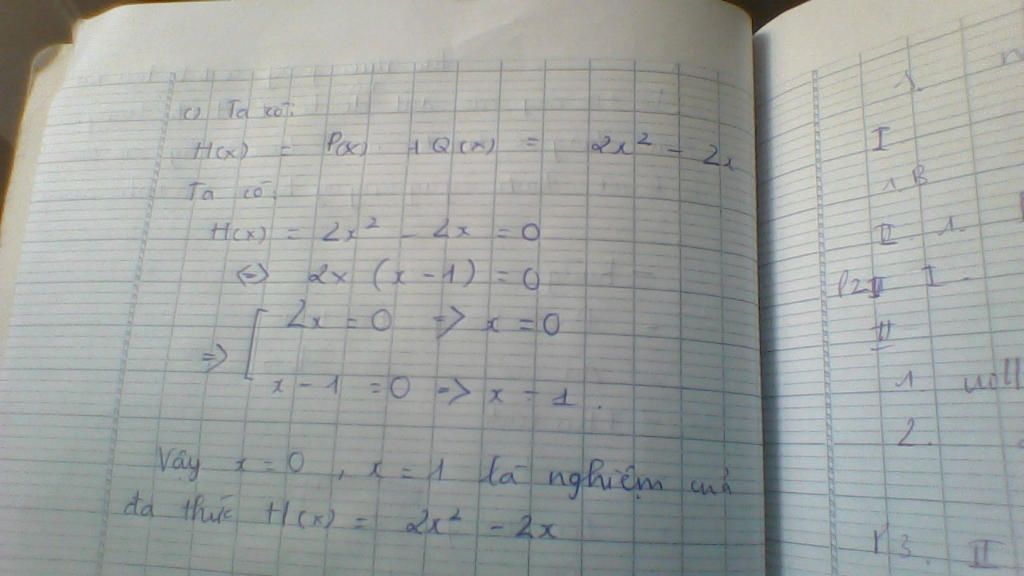 c) Ta có:
H(x) = P(x) + Q(x) = 2x² - 2x
Ta có:
H(x) = 2x² - 2x = 0
<=> 2x (x - 1) = 0
=> [ 2x = 0 => x = 0
x - 1 = 0 => x = 1.
Vậy x = 0, x = 1 là nghiệm của
đa thức H(x) = 2x² - 2x
1.
I
1 B
II. 1.
II I -
II
1.
2.
3. II